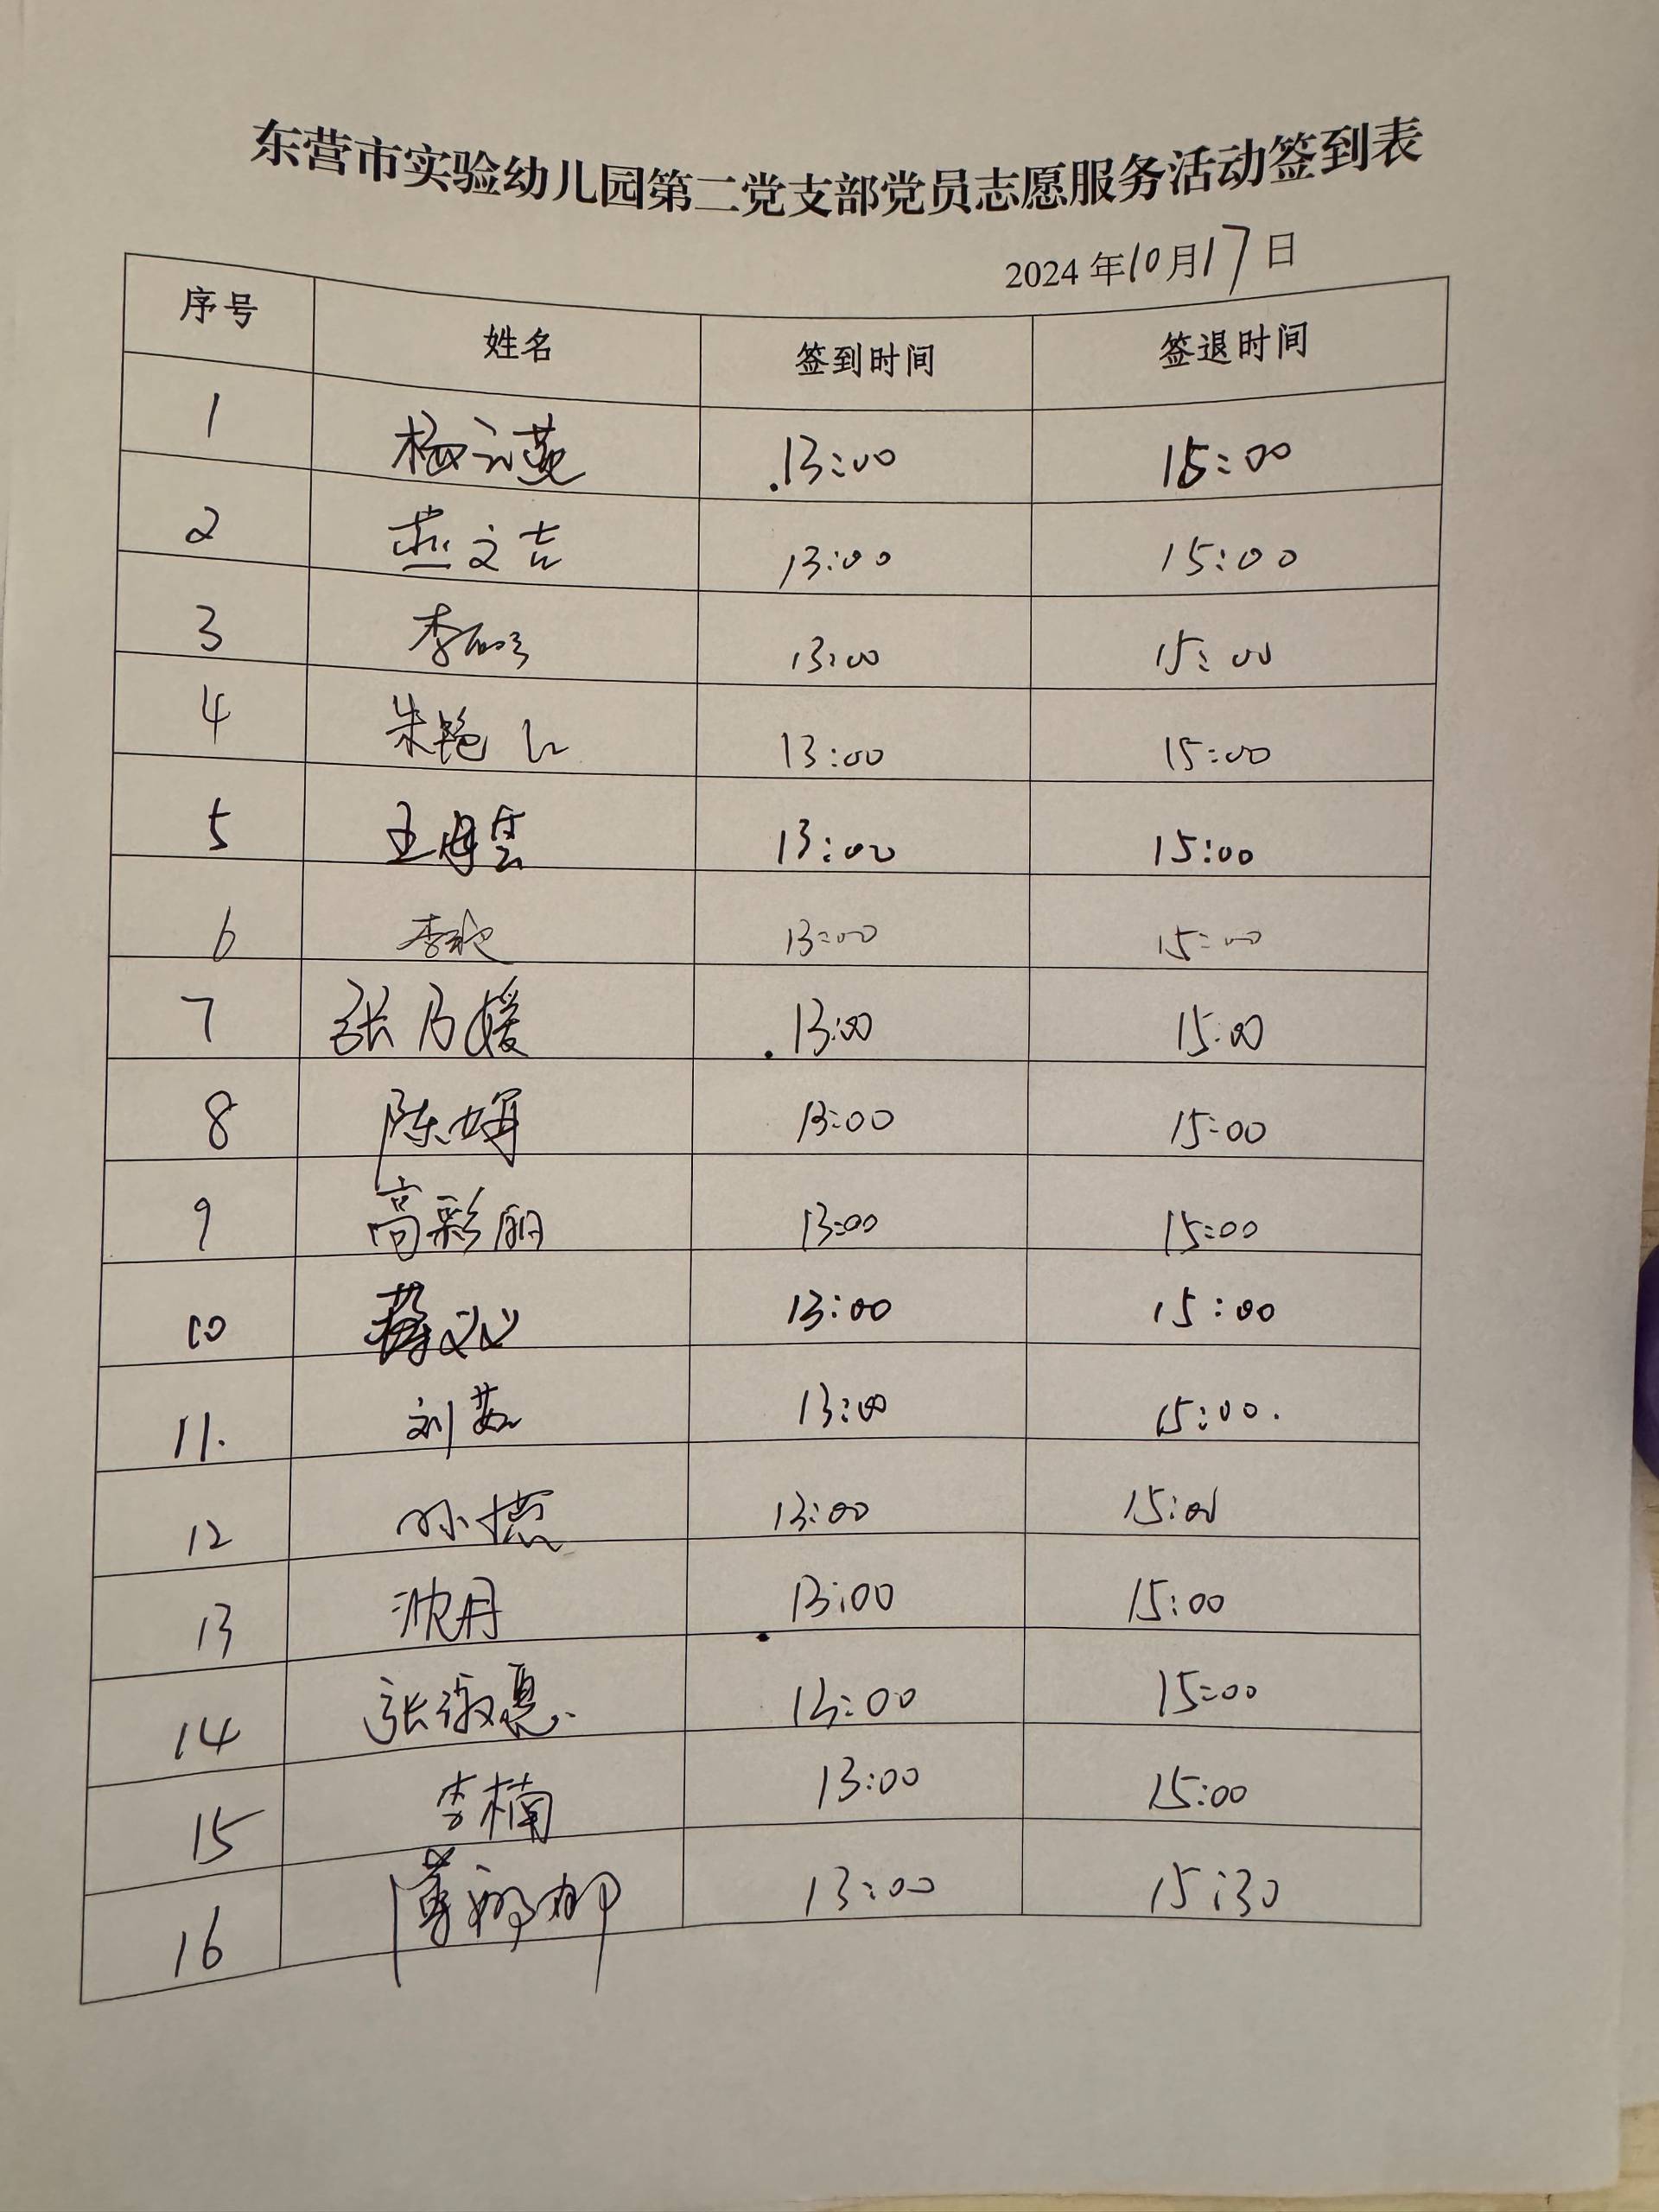 东营市实验幼儿园第二党支部党员志愿服务活动签到表
2024年10月17日
序号 姓名 签到时间 签退时间
1 13:00 15:00
2 燕文吉 13:00 15:00
3 李 13:00 15:00
4 朱艳 13:00 15:00
5 王海云 13:00 15:00
6 李 13:00 15:00
7 张乃媛 13:00 15:00
8 陈娟 13:00 15:00
9 高彩丽 13:00 15:00
10 13:00 15:00
11. 刘茹 13:00 15:00.
12 孙 13:00 15:00
13 沈丹 13:00 15:00
14 张淑惠. 13:00 15:00
15 李楠 13:00 15:00
16 薄娜娜 13:00 15:30